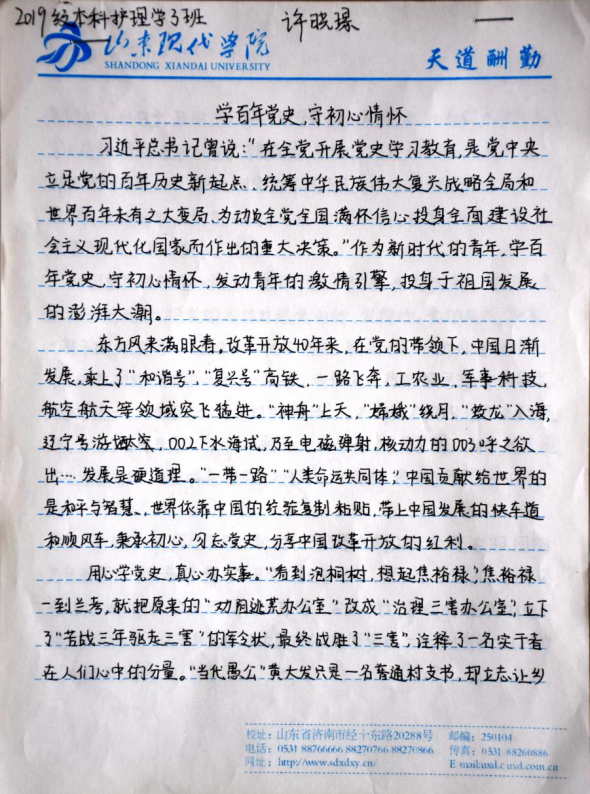 2019级本科护理学3班 许晓璟
山东现代学院
SHANDONG XIANDAI UNIVERSITY
天道酬勤
学百年党史,守初心情怀
习近平总书记曾说:“在全党开展党史学习教育,是党中央
立足党的百年历史新起点、统筹中华民族伟大复兴战略全局和
世界百年未有之大变局、为动员全党全国满怀信心投身全面建设社
会主义现代化国家而作出的重大决策。”作为新时代的青年,学百
年党史,守初心情怀,发动青年的激情引擎,投身于祖国发展
的澎湃大潮。
东方风来满眼春,改革开放40年来,在党的带领下,中国日渐
发展,乘上了“和谐号”、“复兴号”高铁,一路飞奔,工农业,军事科技,
航空航天等领域突飞猛进。“神舟”上天,“嫦娥”绕月,“蛟龙”入海,
辽宁号游,002下水海试,乃至电磁弹射,核动力的003呼之欲
出…发展是硬道理。“一带一路”“人类命运共同体”,中国贡献给世界的
是和平与智慧、世界依靠中国的经验复制粘贴,带上中国发展的快车道
和顺风车,秉承初心,勿忘党史,分享中国改革开放的红利。
用心学党史,真心办实事。“看到泡桐树,想起焦裕禄”,焦裕禄
一到兰考,就把原来的“劝阻逃荒办公室”改成“治理三害办公室”,立下
了“苦战三年驱走三害”的军令状,最终战胜了“三害”,诠释了一名实干者
在人们心中的分量。“当代愚公”黄大发只是一名普通村支书,却立志让乡
校址:山东省济南市经十东路20288号 邮编:250104
电话:0531 88766666 88270766 88270866 传真:0531 88260886
网址:http://www.sdxdxy.cn/ E mail: